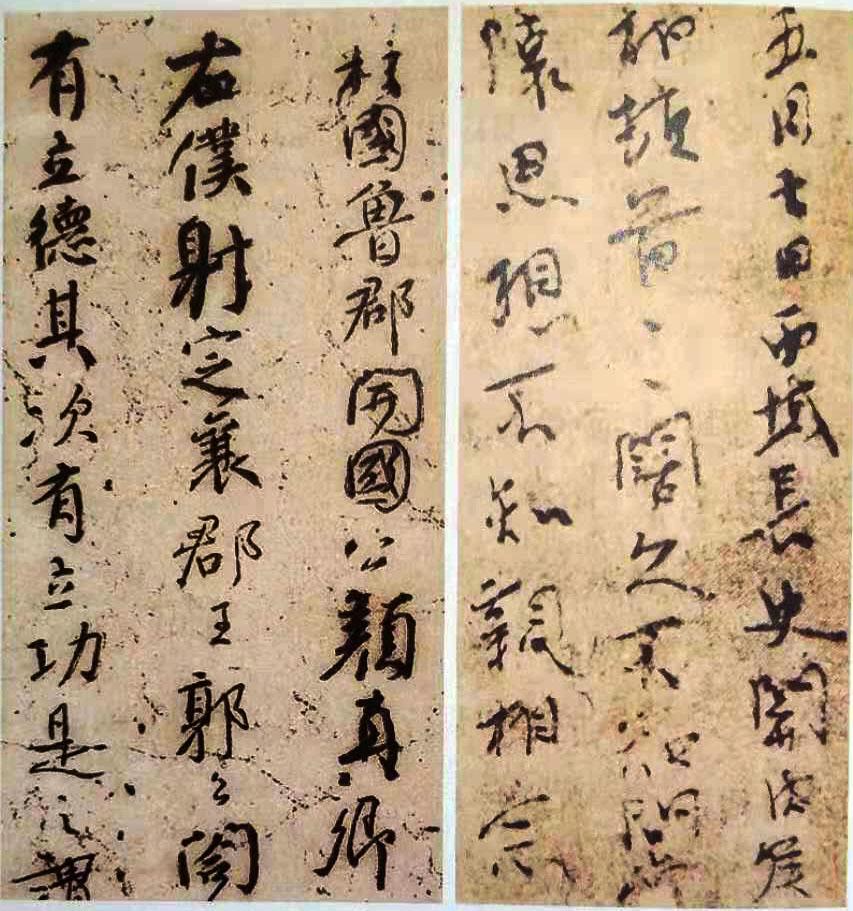 五月七日西域長史關内侯
柏頓首、、闊久不知問常
懷思想不知親相念
柱國魯郡開國公顏真卿
右僕射定襄郡王郭公閤
有立德其次有立功是之謂